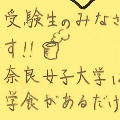 受験生のみなさ
す!!
奈良女子大学に
学食があるだけ